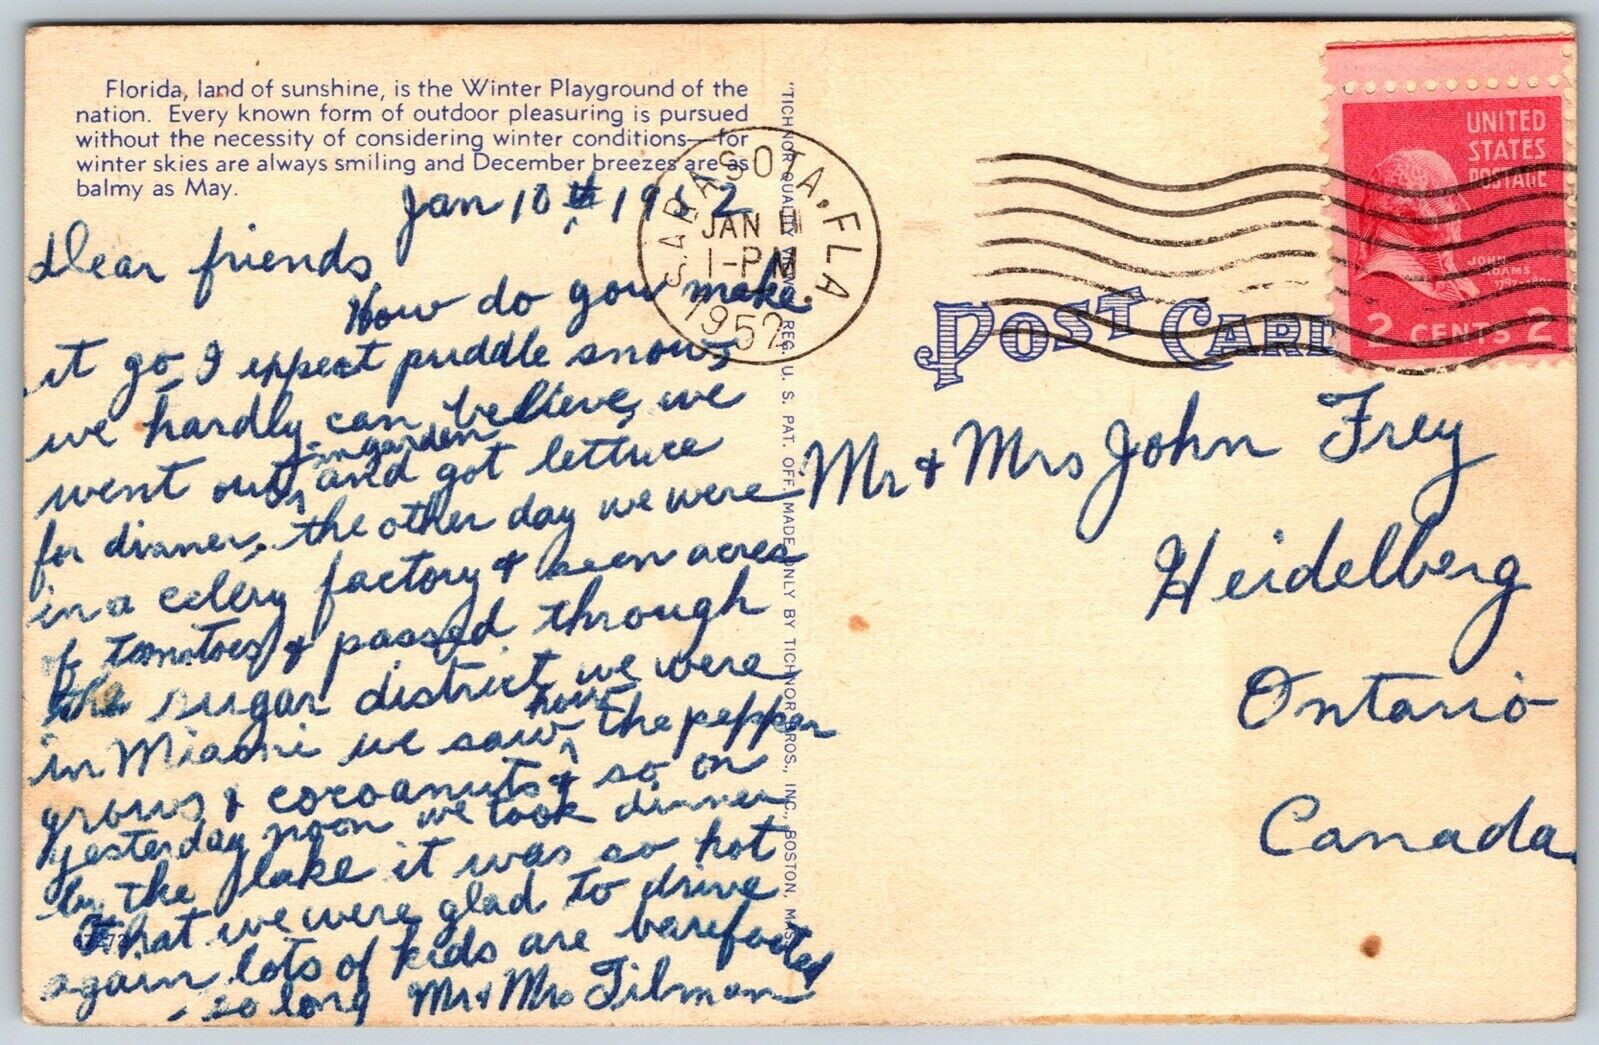 Florida, land of sunshine, is the Winter Playground of the
nation. Every known form of outdoor pleasuring is pursued
without the necessity of considering winter conditions—for
winter skies are always smiling and December breezes are as
balmy as May.
Jan 10th 1952
Dear friends
How do you make
it go I expect puddle snow,
we hardly can believe, we
went out in garden and got lettuce
for dinner. the other day we were
in a celery factory & seen acres
of tomatoes & passed through
the sugar district we were
in Miami we saw how the pepper
grows & cocoanuts & so on
yesterday noon we took dinner
by the lake it was so hot
that we were glad to drive
again lots of kids are barefooted
so long Mr & Mrs Tilman
"TICHNOR QUALITY VIEWS," REG. U. S. PAT. OFF. MADE ONLY BY TICHNOR BROS., INC., BOSTON, MASS.
SARASOTA, FLA
JAN 11
1-PM
1952
UNITED
STATES
POSTAGE
JOHN
ADAMS
2 CENTS 2
POST CARD
Mr & Mrs John Frey
Heidelberg
Ontario
Canada.